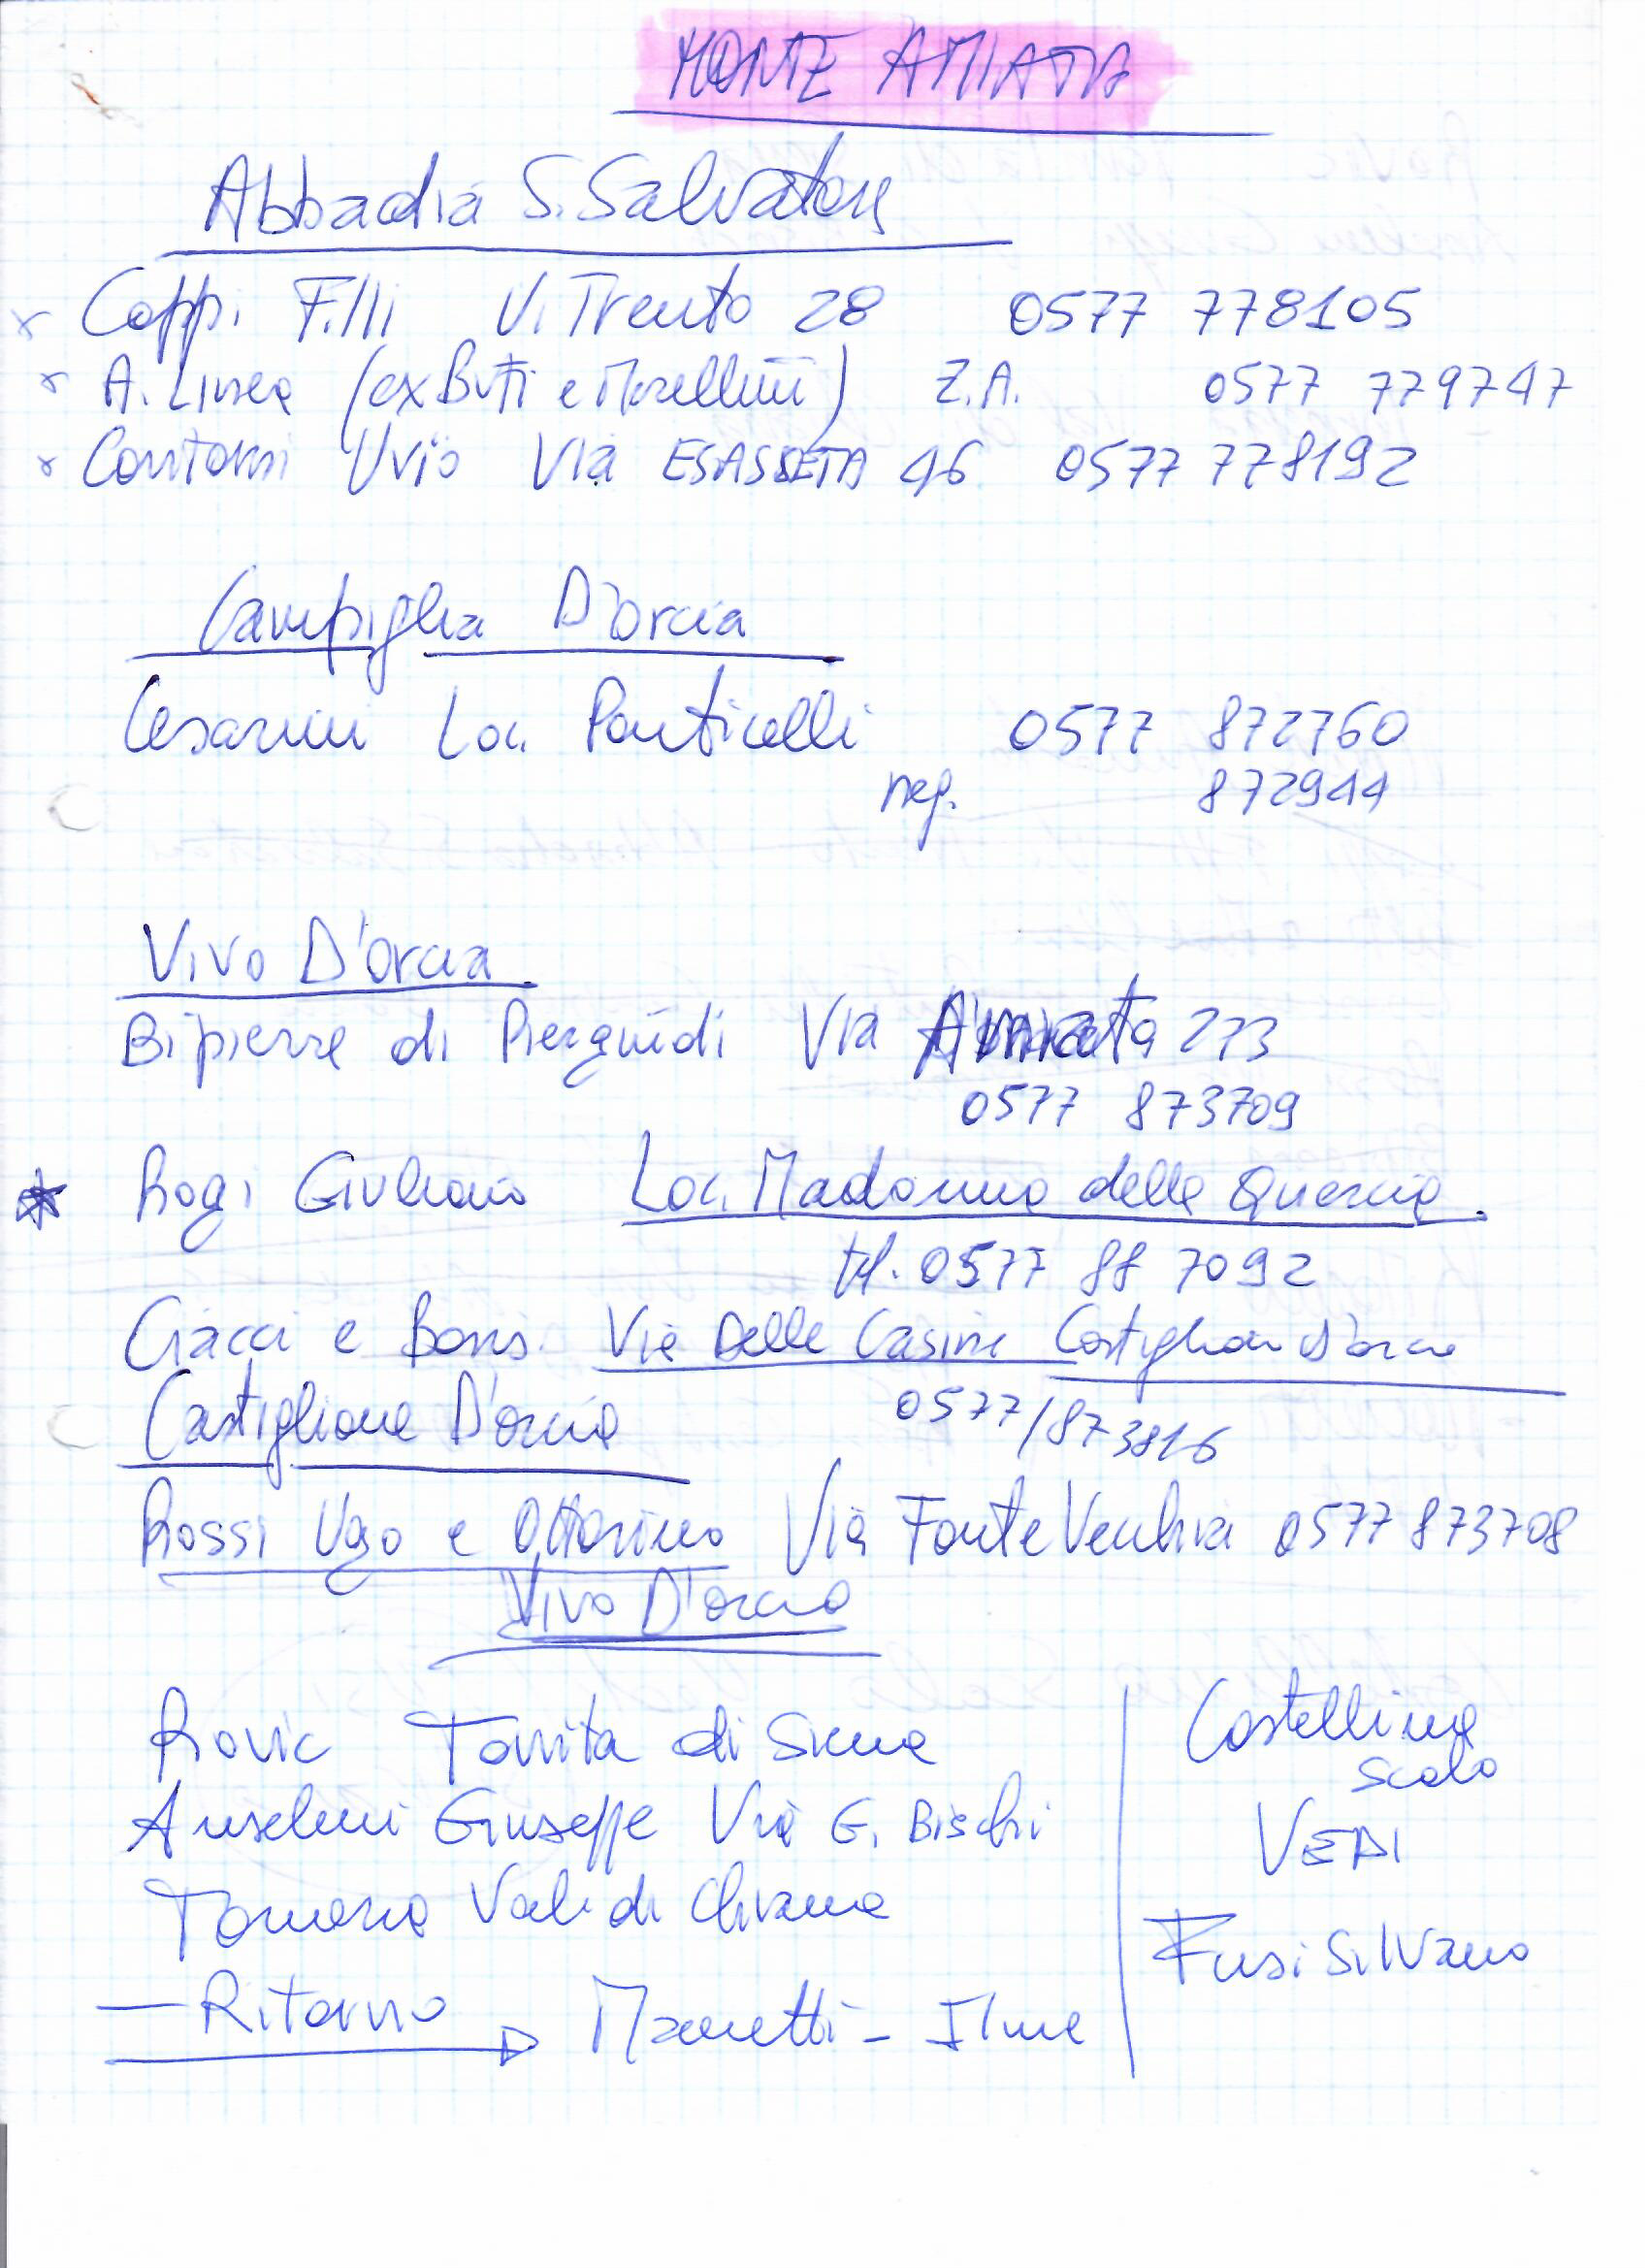 MONTE AMIATA
Abbadia S. Salvatore
x Coppi F.lli V. Trento 28 0577 778105
x A. Linea (ex Buti e Morellini) Z.A. 0577 779747
x Contorni Urio Via ESASSETA 46 0577 778192
Campiglia D'orcia
Cesarini Loc. Ponticelli 0577 872760
neg. 872944
Vivo D'orcia
Bipierre di Pierguidi Via Amiata 273
0577 873709
Rogi Giuliano Loc. Madonna della Quercia
tel. 0577 88 7092
Ciacci e Bovis. Via Delle Casine Castiglion D'orcia
0577/873816
Castiglione D'orcia
Rossi Ugo e Ottorino Via Fonte Vecchia 0577 873708
Vivo D'orcia
Rovic Torrita di Siena
Anselmi Giuseppe Via G. Bischi
Torneria Val di Chiana
— Ritorno Manetti - Ilme
Castellina
scalo
VEDI
Fusi Silvano